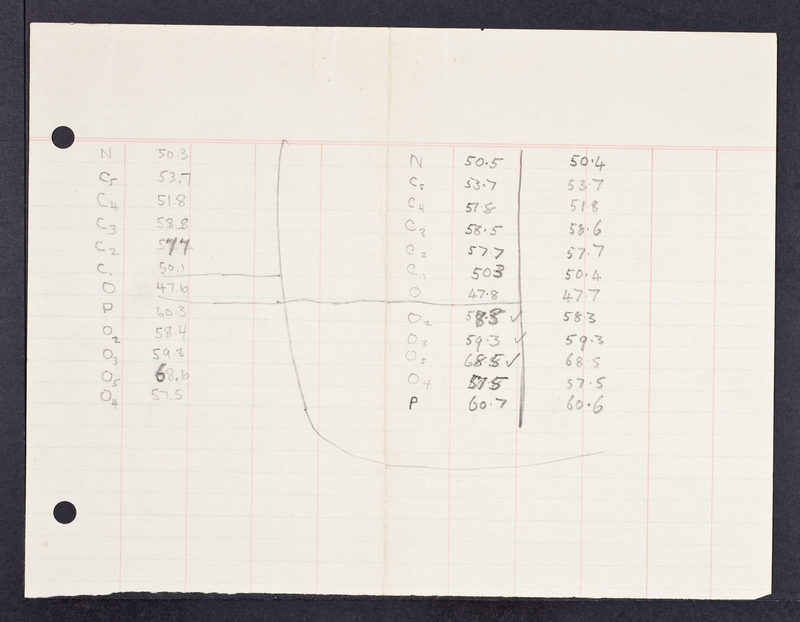 N 50.3
C5 53.7
C4 51.8
C3 58.8
C2 577
C1 50.1
O 47.6
P 60.3
O2 58.4
O3 59.3
O5 68.6
O4 57.5
N 50.5 50.4
C5 53.7 53.7
C4 51.8 51.8
C3 58.5 58.6
C2 57.7 57.7
C1 503 50.4
O 47.8 47.7
O2 ✓ 58.3
O3 59.3 ✓ 59.3
O5 68.5 ✓ 68.5
O4 57.5 57.5
P 60.7 60.6